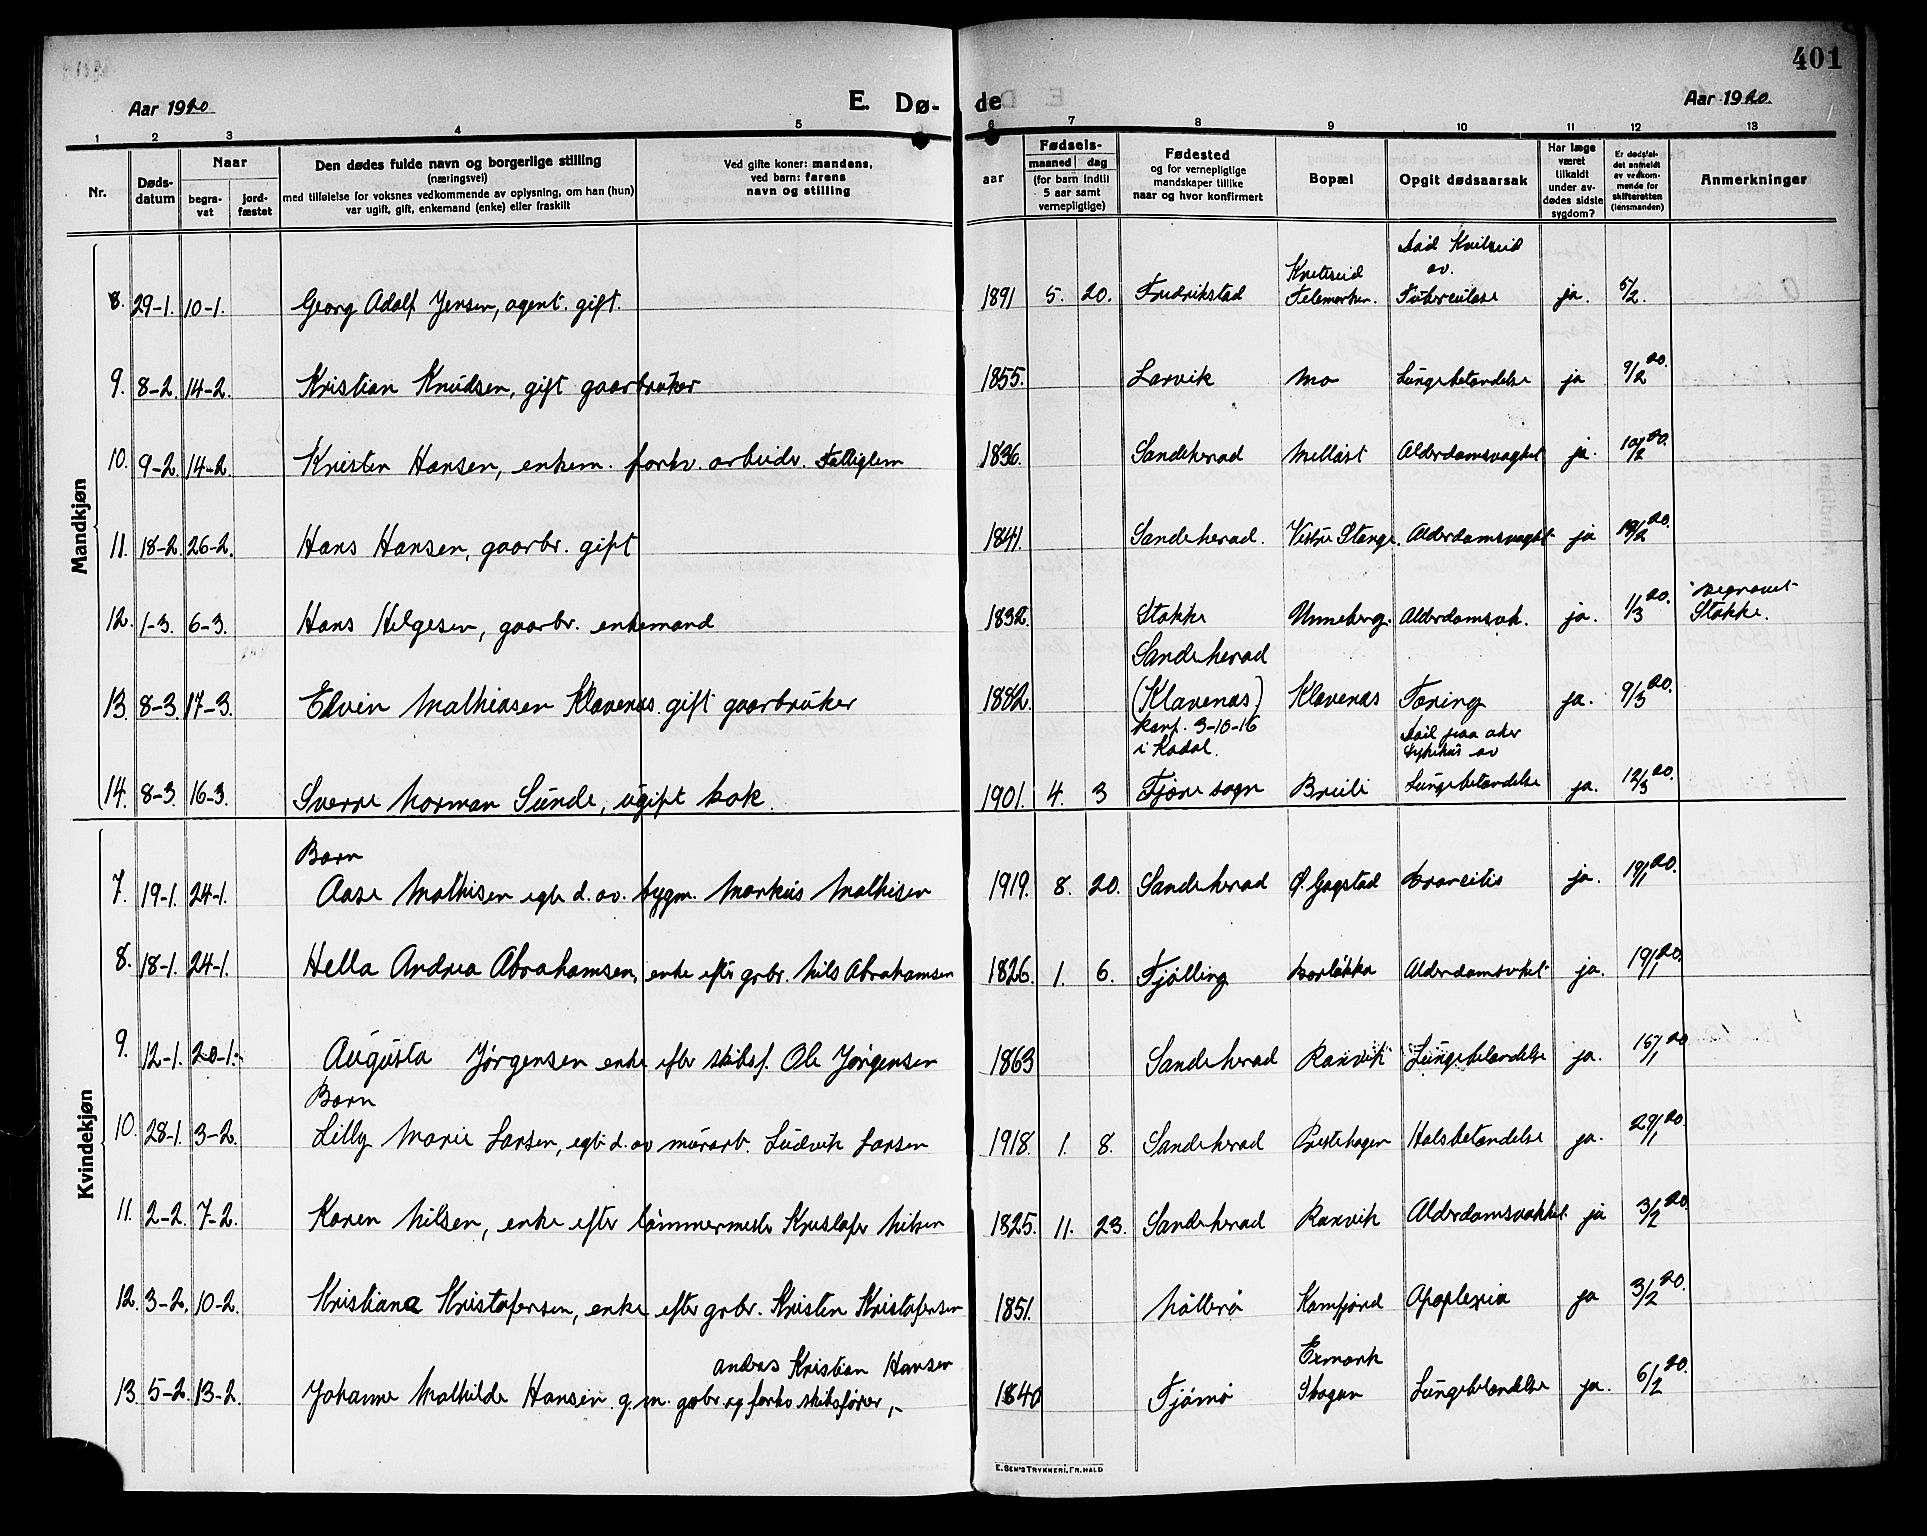 401
Aar 1920
E. Dø- de
Aar 1920.
1 2 3 4 5 6 7 8 9 10 11 12 13
Nr.
Døds-datum
Naar
begra-vet
jord-fæstet
Den dødes fulde navn og borgerlige stilling
(næringsvei)
med tilføielse for voksnes vedkommende av oplysning, om han (hun)
var ugift, gift, enkemand (enke) eller fraskilt
Ved gifte koner: mandens,
ved barn: farens
navn og stilling
Fødsels-
aar
maaned
dag
(for barn indtil
5 aar samt
vernepligtige)
Fødested
og for vernepligtige
mandskaper tillike
naar og hvor konfirmert
Bopæl
Opgit dødsaarsak
Har læge
været
tilkaldt
under av-
dødes sidste
sygdom?
Er dødsfal-
det anmeldt
av vedkom-
mende for
skifteretten
(lensmanden)
Anmerkninger
Mandkjøn
8. 29-1. 10-1. Georg Adolf Jensen, agent. gift. 1891 5. 20. Fredrikstad Kviteseid Telemarken. Død Kvitseid av. Tuberculose ja. 5/2.
9. 8-2. 14-2. Kristian Knudsen, gift gaarbruker 1855. Larvik Mo Lungebetændelse ja 9/2 20.
10. 9-2. 14-2. Kristen Hansen, enkem. forhv. arbeider. Fattiglem 1836. Sandeherad Melløst Alderdomsvaghet ja. 10/2 20.
11. 18-2. 26-2. Hans Hansen, gaarbr. gift 1841. Sandeherad. Vestre Stange. Alderdomsvaght ja 19/2 20.
12. 1-3. 6-3. Hans Helgesen, gaarbr. enkemand 1832. Stokke Unneberg. Alderdomsvk. ja. 1/3 20. begravet Stokke.
13. 8-3. 17-3. Elvin Mathiasen Klavenes. gift gaarbruker 1882. Sandeherad (Klavenæs) Klavenæs Tæring ja. 9/3 20.
14. 8-3. 16-3. Sverre Norman Sunde, ugift kok. 1901. 4. 3 konf. 3-10-16 i Kodal. Fjære sogn Breili Død paa aker sykehus av Lungebetændelse ja. 12/3 20.
Kvindekjøn
7. 19-1. 24-1. Barn Aase Mathisen egte d. av. bygm. Markus Mathisen 1919. 8. 20. Sandeherad Ø. Gogstad ja. 19/1 20.
8. 18-1. 24-1. Hella Andrea Abrahamsen, enke efter grbr. Nils Abrahamsen 1826. 1. 6. Fjølling Alderdomsvket ja. 19/1 20.
9. 12-1. 20-1. Augusta Jørgensen enke efter skibsf. Ole Jørgensen 1863 Sandeherad Ranvik Lungebetændelse ja. 15/1 20
10. 28-1. 3-2. Barn Lilly Marie Larsen, egte d. av murarb. Ludvik Larsen 1918. 1. 8. Sandeherad Prestehagen Halsbetændelse ja. 29/1 20.
11. 2-2. 7-2. Karen Nilsen, enke efter tømmermester Kristofer Nilsen 1825. 11. 23. Sandeherad Ranvik Alderdomsvakhet. ja 3/2 20.
12. 3-2. 10-2. Kristiana Kristofersen, enke efter grbr. Kristen Kristofersen 1851. Nøtterø Kamfjord Apoplexia ja 3/2 20.
13. 5-2. 13-2. Johanne Mathilde Hansen g. m. grbr og forhv skibsfører, Andreas Kristian Hansen 1840 Tjømø Exmark Skogan Lungebetændelse ja. 6/2 20.
E. SEM'S TRYKKERI, FR.HALD